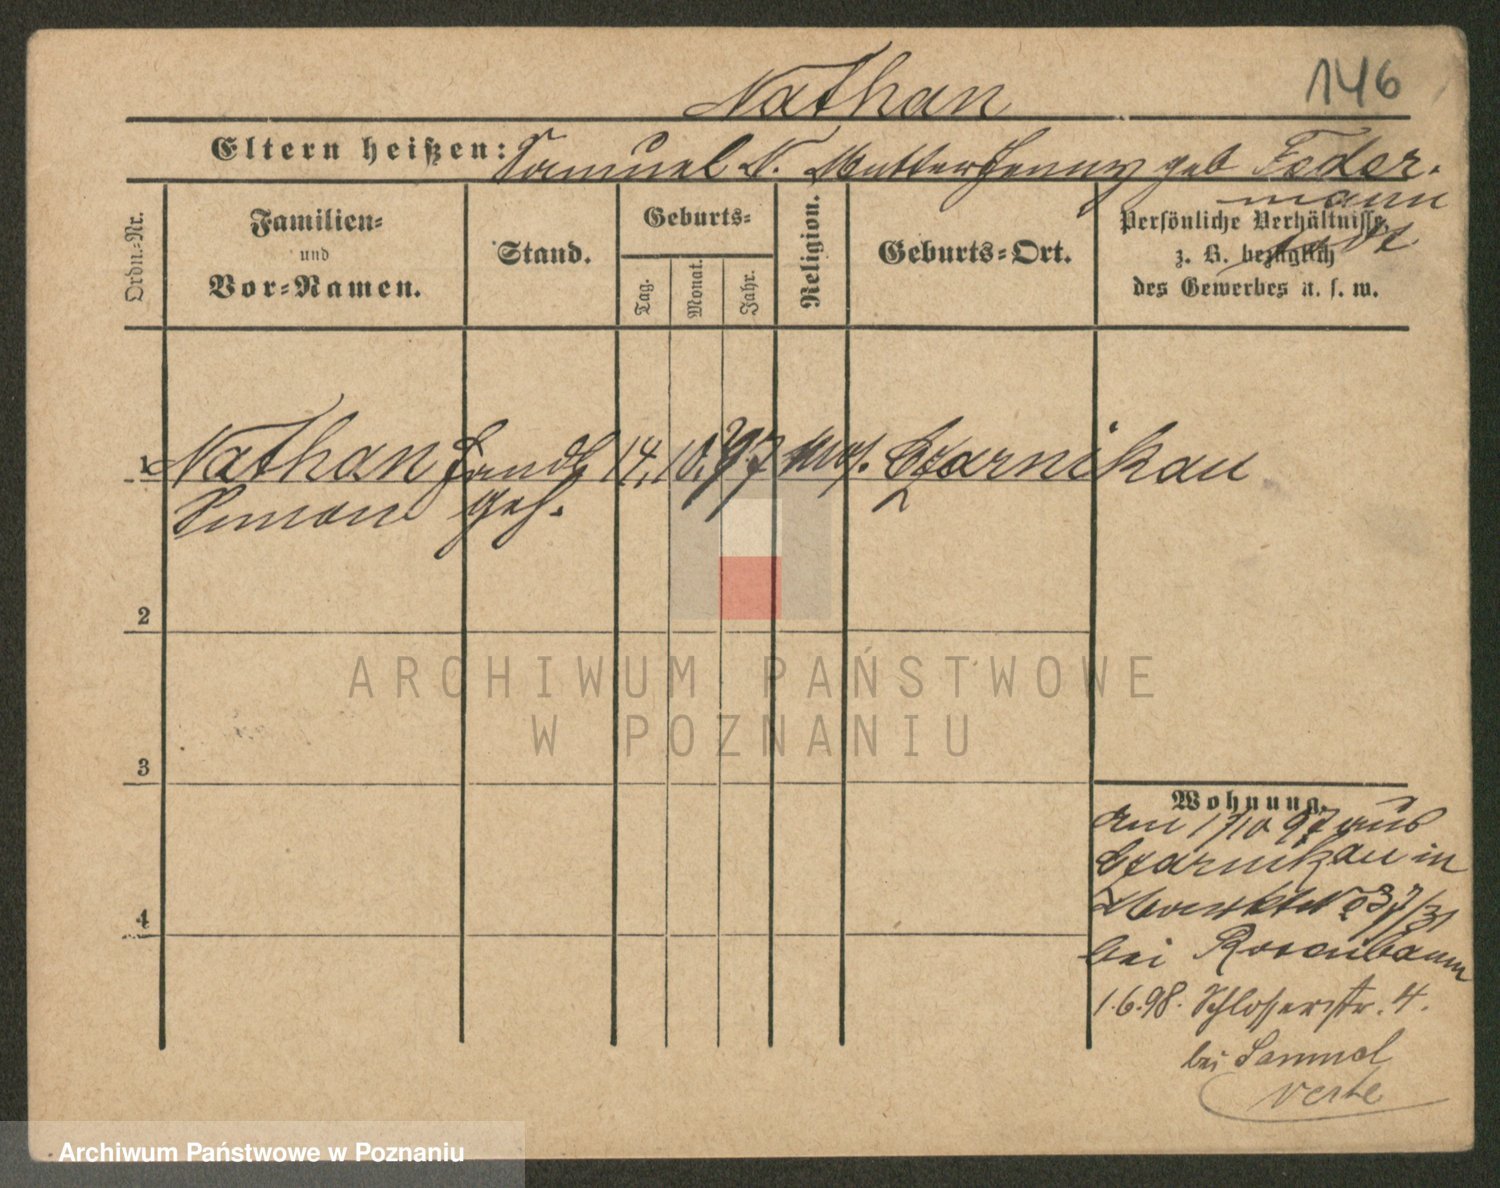 Nathan
146
Eltern heißen: Samuel N. Mutter Jenny geb Feder-
mann
todt
Ordn.-Nr.
Familien-
und
Vor-Namen.
Stand.
Geburts-
Tag.
Monat.
Jahr.
Religion.
Geburts-Ort.
Persönliche Verhältnisse
z. B. bezüglich
des Gewerbes u. s. w.
1 Nathan Handl 14. 10. mos. Czarnikau
Simon geh.
2
3
4
ARCHIWUM PAŃSTWOWE
W POZNANIU
Wohnung.
am 1/10 97 aus
Czarnikau in
bei Rosenbaum
1.6.98. Schlosserstr. 4.
bei Samuel
verte
Archiwum Państwowe w Poznaniu